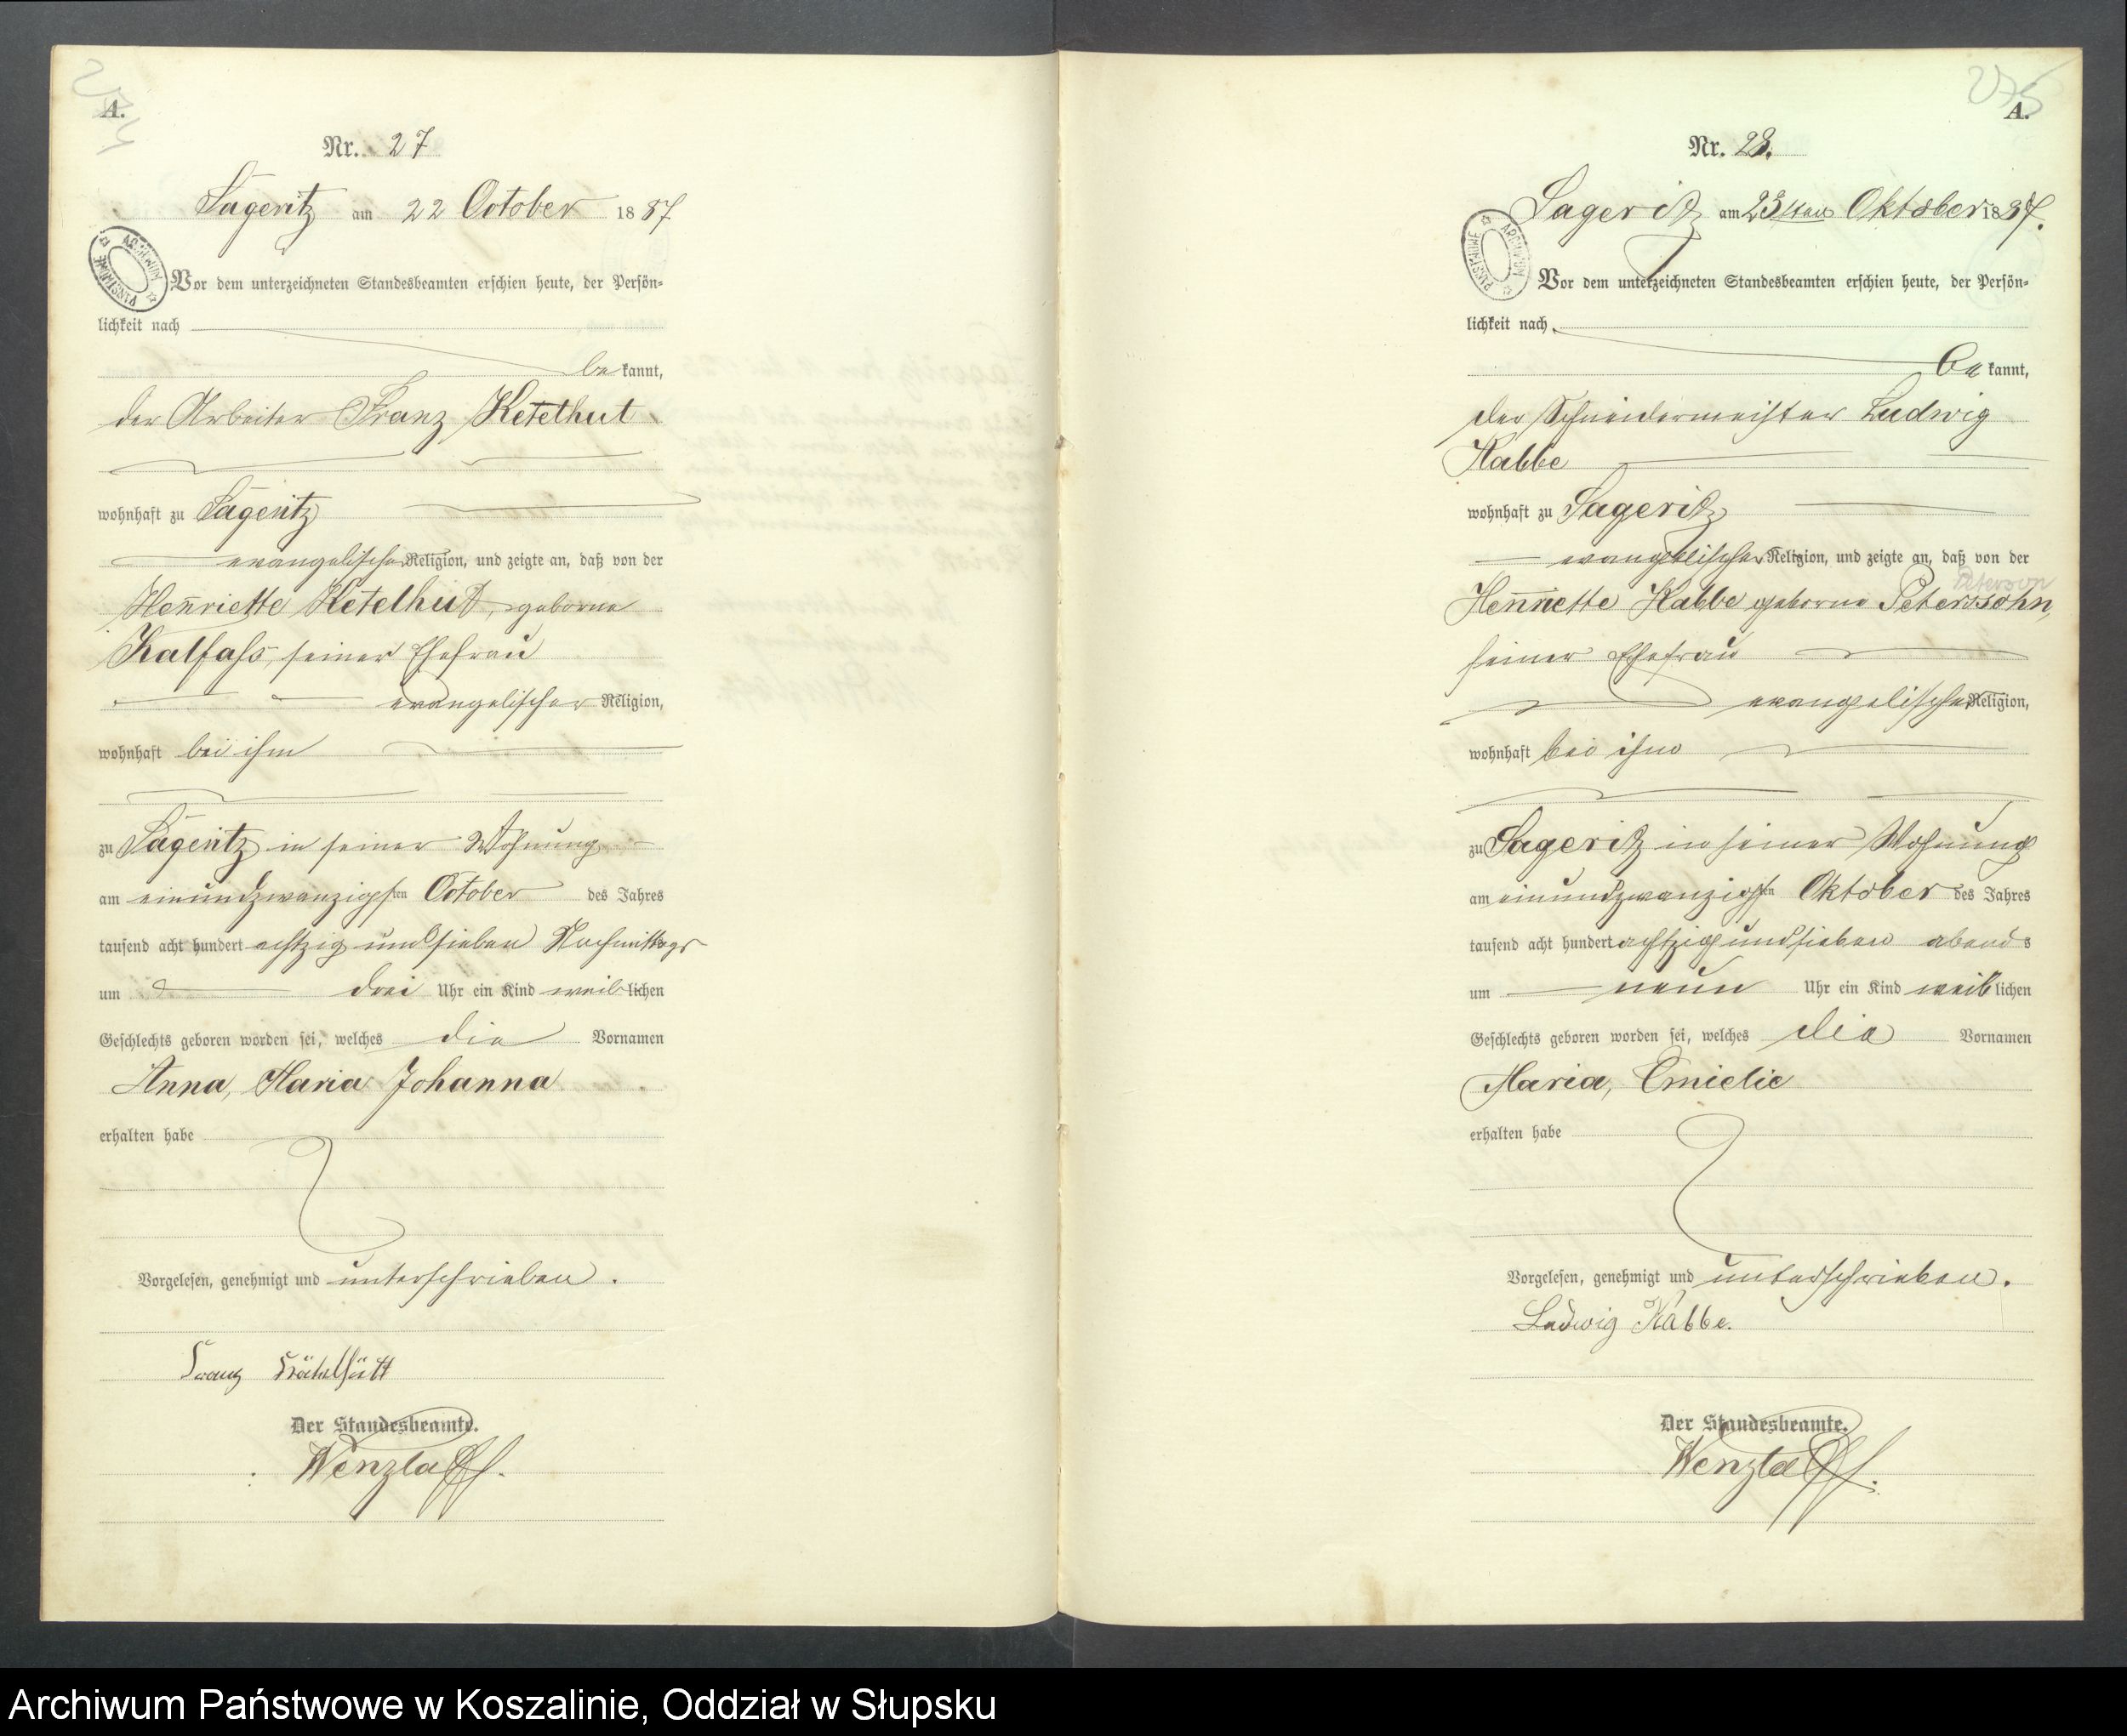 274
A.
Nr. 27
Sageritz am 22 October 1887
ARCHIWUM PAŃSTWOWE
Vor dem unterzeichneten Standesbeamten erschien heute, der Persön-
lichkeit nach
bekannt,
der Arbeiter Franz Ketelhut
wohnhaft zu Sageritz
evangelischer Religion, und zeigte an, daß von der
Henriette Ketelhut, geborne
Kalfass, seiner Ehefrau
evangelischer Religion,
wohnhaft bei ihm
zu Sageritz in seiner Wohnung
am einundzwanzigsten October des Jahres
tausend acht hundert achtzig und sieben Nachmittags
um drei Uhr ein Kind weiblichen
Geschlechts geboren worden sei, welches die Vornamen
Anna, Maria Johanna
erhalten habe
Vorgelesen, genehmigt und unterschrieben.
Franz
Der Standesbeamte.
Wenzlaff.
275
A.
Nr. 28.
Sageritz am 23sten Oktober 1887.
ARCHIWUM PAŃSTWOWE
Vor dem unterzeichneten Standesbeamten erschien heute, der Persön-
lichkeit nach
bekannt,
der Schneidermeister Ludwig
Kabbe
wohnhaft zu Sageritz
evangelischer Religion, und zeigte an, daß von der
Peterson
Henriette Kabbe geborne Peterssohn,
seiner Ehefrau
evangelischer Religion,
wohnhaft bei ihm
zu Sageritz in seiner Wohnung
am einundzwanzigsten Oktober des Jahres
tausend acht hundert achtzig und sieben abends
um neun Uhr ein Kind weiblichen
Geschlechts geboren worden sei, welches die Vornamen
Maria, Emielie
erhalten habe
Vorgelesen, genehmigt und unterschrieben.
Ludwig Kabbe.
Der Standesbeamte.
Wenzlaff.
Archiwum Państwowe w Koszalinie, Oddział w Słupsku